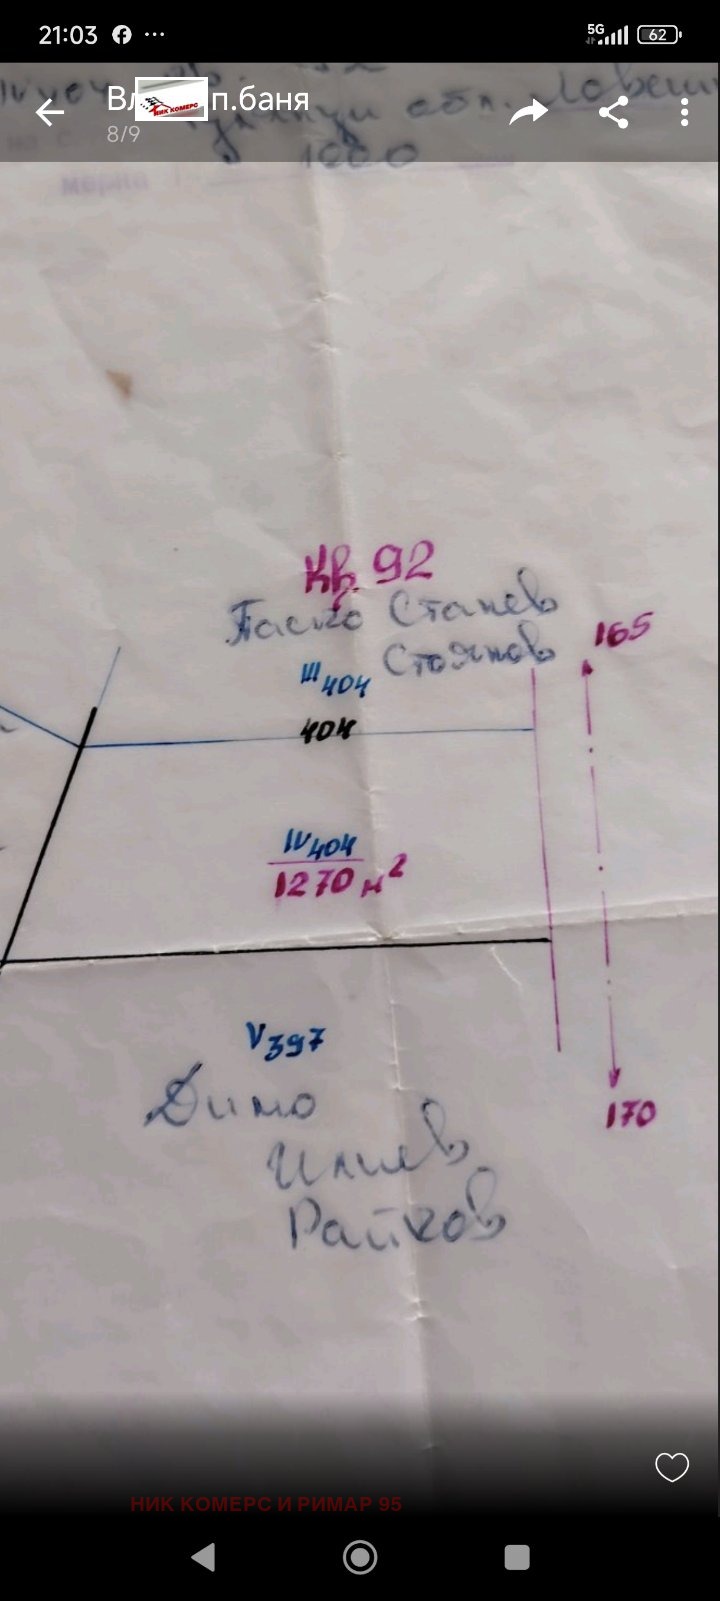 21:03
5G 62
Вл п.баня
НИК КОМЕРС
8/9
IV404
обл. Ловешка
1000
мерна
Кв. 92
Паско Станев
Стоянов
165
III404
404
IV404
1270 м²
V397
Димо
Илиев
Райков
170
НИК КОМЕРС И РИМАР 95